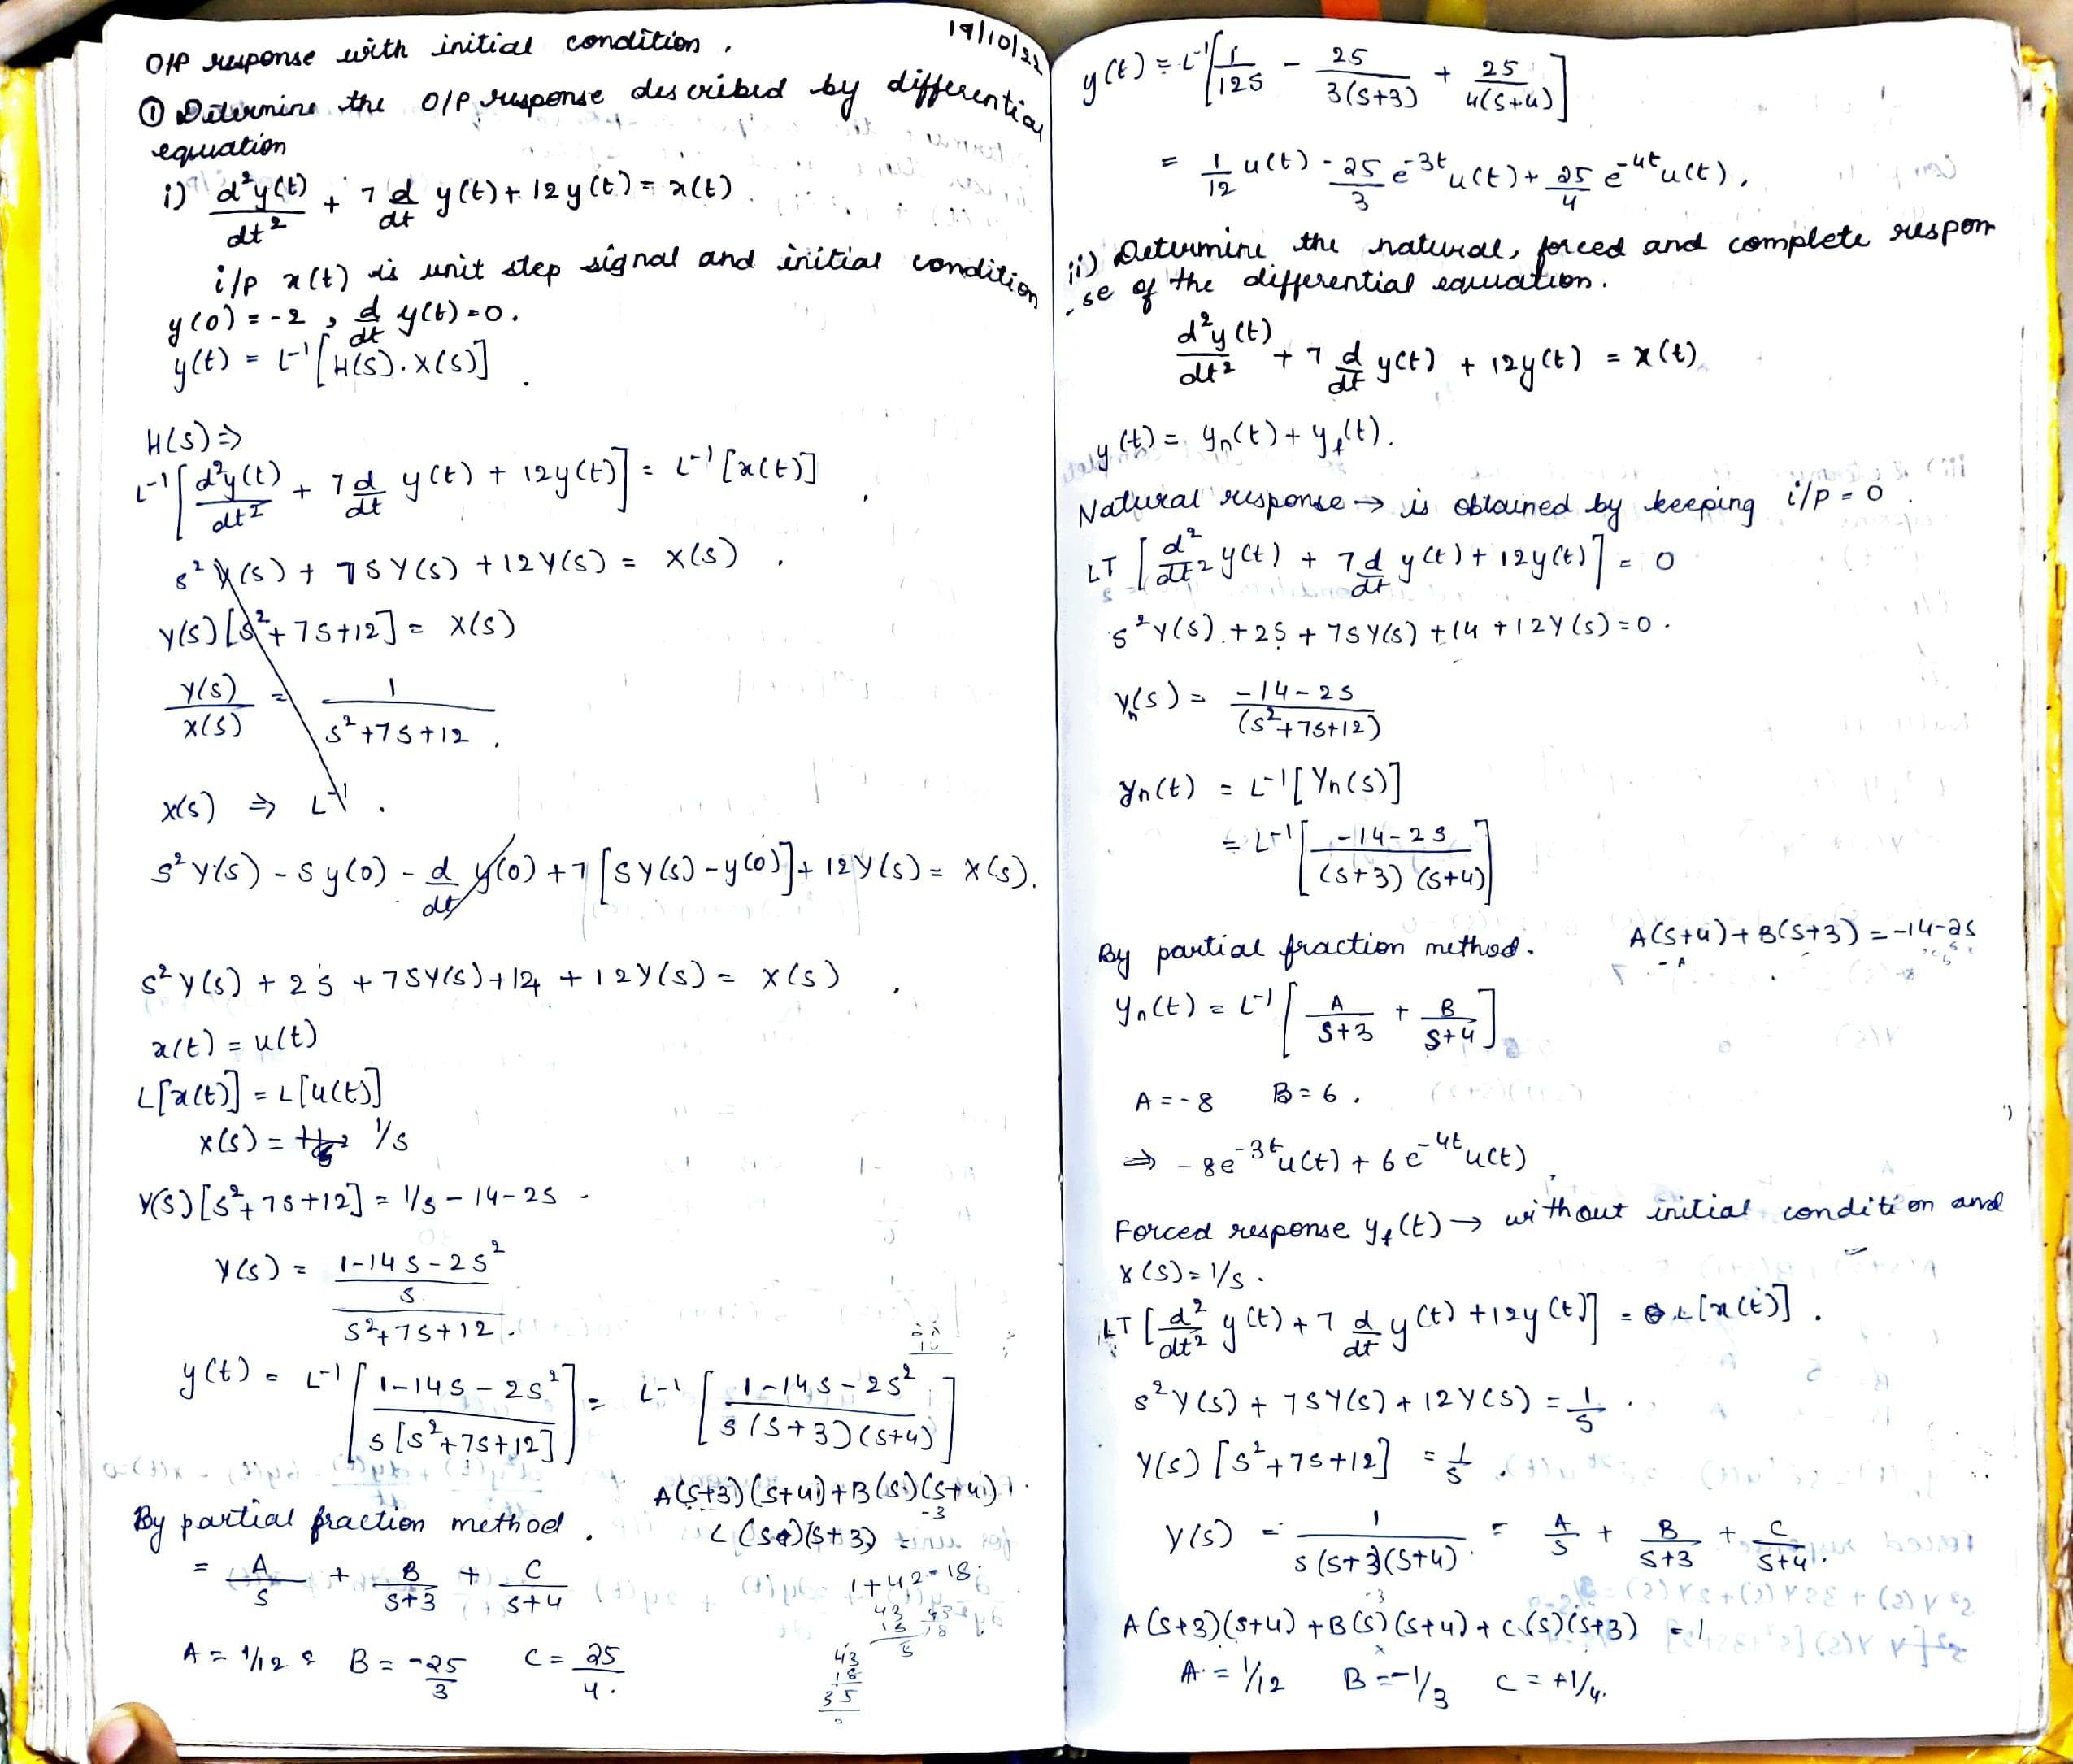 O/P response with initial condition.
19/10/22
① Determine the O/P response described by differential
equation
i) d²y(t)/dt² + 7 d/dt y(t) + 12y(t) = x(t).
i/p x(t) is unit step signal and initial condition
y(0) = -2, d/dt y(t) = 0.
y(t) = L⁻¹[H(s).X(s)].
H(s) ⇒
L⁻¹[d²y(t)/dt² + 7 d/dt y(t) + 12y(t)] = L⁻¹[x(t)]
s²Y(s) + 7sY(s) + 12Y(s) = X(s).
Y(s)[s²+7s+12] = X(s)
Y(s)/X(s) = 1/(s²+7s+12).
X(s) ⇒ L⁻¹.
s²Y(s) - sy(0) - d/dt y(0) + 7[sY(s) - y(0)] + 12Y(s) = X(s).
s²Y(s) + 2s + 7sY(s) + 14 + 12Y(s) = X(s)
x(t) = u(t)
L[x(t)] = L[u(t)]
X(s) = 1/s
Y(s)[s²+7s+12] = 1/s - 14 - 2s
Y(s) = ((1-14s-2s²)/s)/(s²+7s+12).
y(t) = L⁻¹[(1-14s-2s²)/(s[s²+7s+12])] = L⁻¹[(1-14s-2s²)/(s(s+3)(s+4))]
A(s+3)(s+4)+B(s)(s+4)+
By partial fraction method.
C(s)(s+3)
= A/s + B/(s+3) + C/(s+4)
1+42-18
A = 1/12 B = -25/3 C = 25/4.
y(t) = L⁻¹[1/12s - 25/(3(s+3)) + 25/(4(s+4))]
= 1/12 u(t) - 25/3 e⁻³ᵗu(t) + 25/4 e⁻⁴ᵗu(t).
ii) Determine the natural, forced and complete respon
-se of the differential equation.
d²y(t)/dt² + 7 d/dt y(t) + 12y(t) = x(t)
y(t) = yn(t) + yf(t).
Natural response → is obtained by keeping i/p = 0.
LT [d²/dt² y(t) + 7 d/dt y(t) + 12y(t)] = 0
s²Y(s) + 2s + 7sY(s) + 14 + 12Y(s) = 0.
Yn(s) = (-14-2s)/(s²+7s+12)
yn(t) = L⁻¹[Yn(s)]
= L⁻¹[(-14-2s)/((s+3)(s+4))]
By partial fraction method. A(s+4)+B(s+3) = -14-2s
yn(t) = L⁻¹[A/(s+3) + B/(s+4)]
A = -8 B = 6.
⇒ -8e⁻³ᵗu(t) + 6e⁻⁴ᵗu(t)
Forced response yf(t) → without initial condition and
X(s) = 1/s.
LT [d²/dt² y(t) + 7 d/dt y(t) + 12y(t)] = L[x(t)].
s²Y(s) + 7sY(s) + 12Y(s) = 1/s
Y(s)[s²+7s+12] = 1/s
Y(s) = 1/(s(s+3)(s+4)) = A/s + B/(s+3) + C/(s+4).
A(s+3)(s+4) + B(s)(s+4) + C(s)(s+3) = 1
A = 1/12 B = -1/3 C = +1/4.